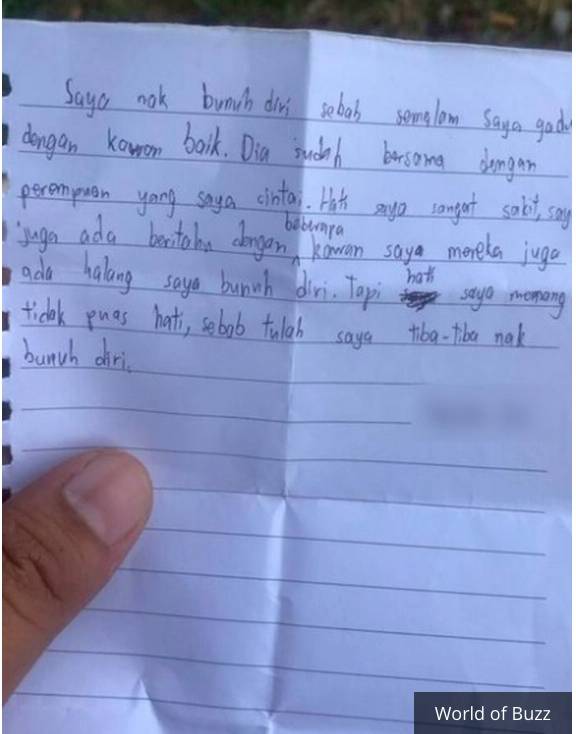 Saya nak bunuh diri sebab semalam saya gadu
dengan kawan baik. Dia sudah bersama dengan
perempuan yang saya cintai. Hati saya sangat sakit, say
juga ada beritahu dengan beberapa kawan saya mereka juga
ada halang saya bunuh diri. Tapi hati saya memang
tidak puas hati, sebab tulah saya tiba-tiba nak
bunuh diri.
World of Buzz